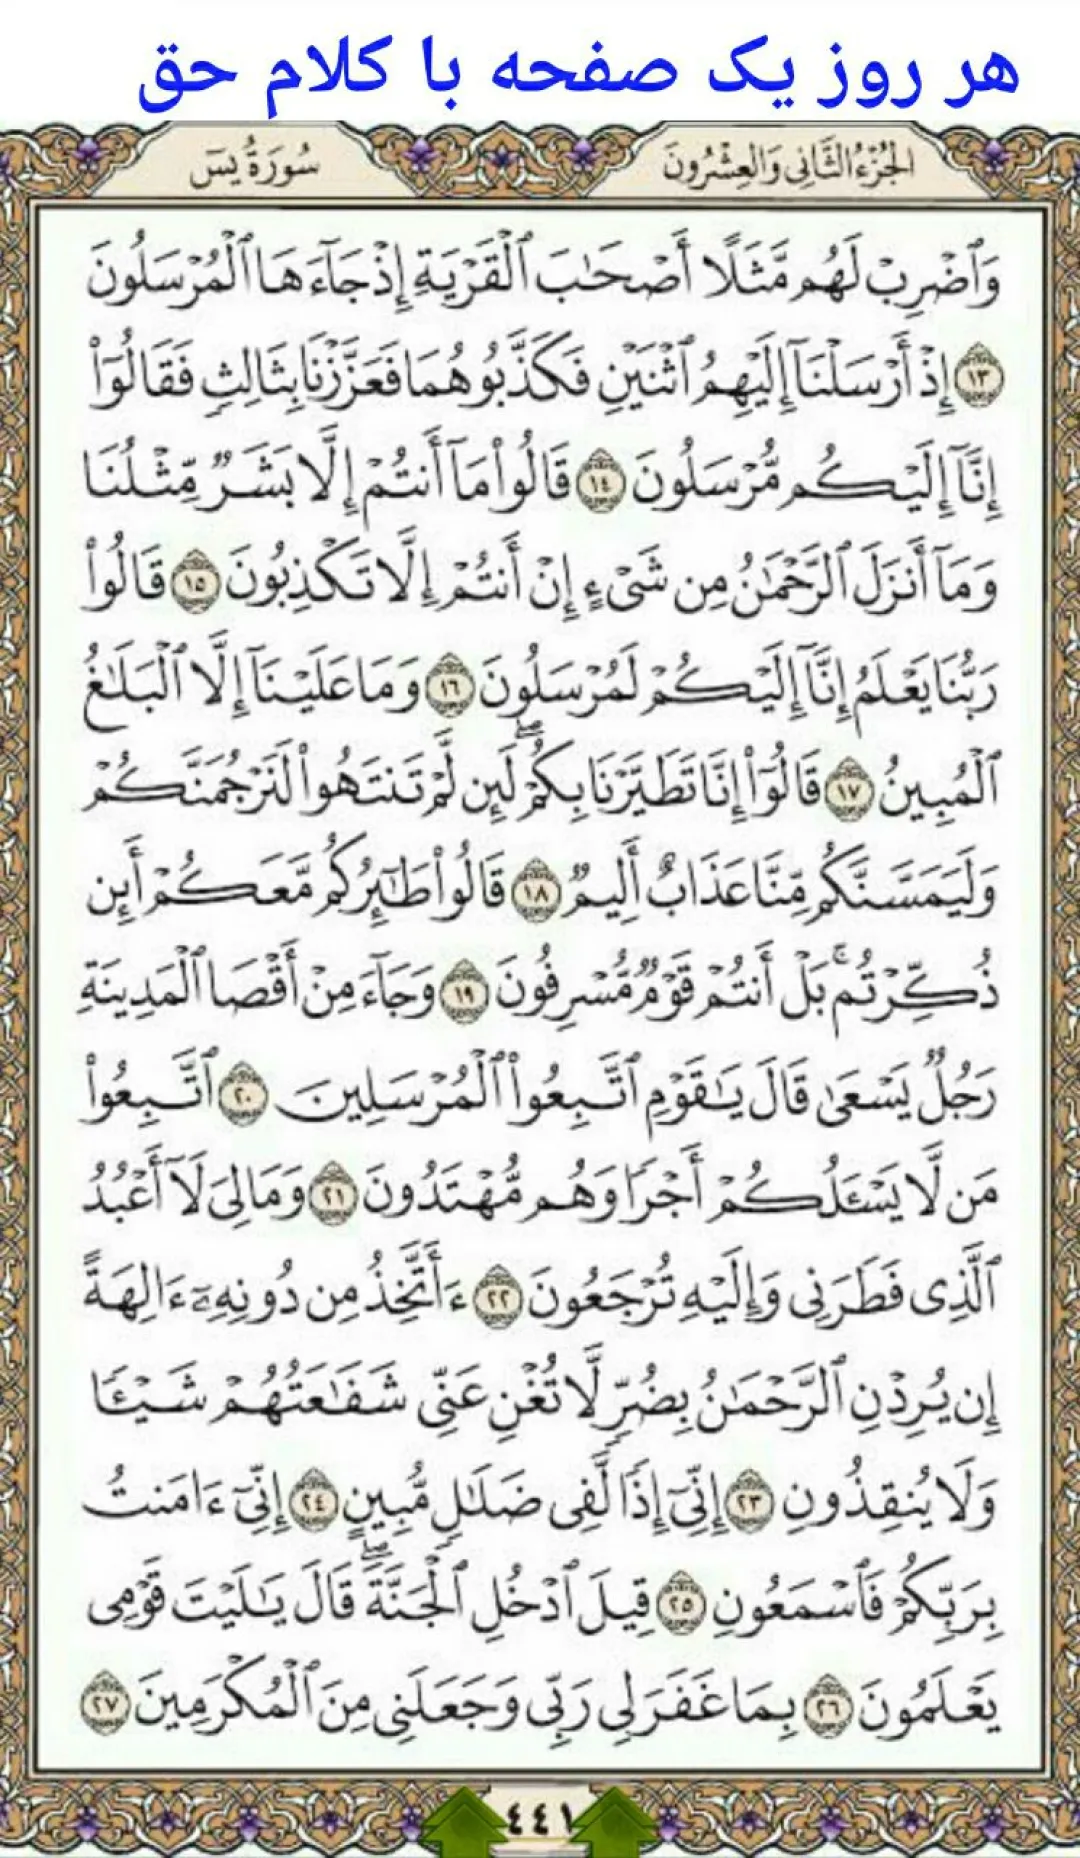 هر روز یک صفحه با کلام حق
الجُزْءُ الثَّانِي وَالعِشْرُونَ
سُورَةُ يسٓ
وَٱضْرِبْ لَهُم مَّثَلًا أَصْحَٰبَ ٱلْقَرْيَةِ إِذْ جَآءَهَا ٱلْمُرْسَلُونَ
١٣ إِذْ أَرْسَلْنَآ إِلَيْهِمُ ٱثْنَيْنِ فَكَذَّبُوهُمَا فَعَزَّزْنَا بِثَالِثٍ فَقَالُوٓا۟
إِنَّآ إِلَيْكُم مُّرْسَلُونَ ١٤ قَالُوا۟ مَآ أَنتُمْ إِلَّا بَشَرٌ مِّثْلُنَا
وَمَآ أَنزَلَ ٱلرَّحْمَٰنُ مِن شَىْءٍ إِنْ أَنتُمْ إِلَّا تَكْذِبُونَ ١٥ قَالُوا۟
رَبُّنَا يَعْلَمُ إِنَّآ إِلَيْكُمْ لَمُرْسَلُونَ ١٦ وَمَا عَلَيْنَآ إِلَّا ٱلْبَلَٰغُ
ٱلْمُبِينُ ١٧ قَالُوٓا۟ إِنَّا تَطَيَّرْنَا بِكُمْ ۖ لَئِن لَّمْ تَنتَهُوا۟ لَنَرْجُمَنَّكُمْ
وَلَيَمَسَّنَّكُم مِّنَّا عَذَابٌ أَلِيمٌ ١٨ قَالُوا۟ طَٰٓئِرُكُم مَّعَكُمْ ۚ أَئِن
ذُكِّرْتُم ۚ بَلْ أَنتُمْ قَوْمٌ مُّسْرِفُونَ ١٩ وَجَآءَ مِنْ أَقْصَا ٱلْمَدِينَةِ
رَجُلٌ يَسْعَىٰ قَالَ يَٰقَوْمِ ٱتَّبِعُوا۟ ٱلْمُرْسَلِينَ ٢٠ ٱتَّبِعُوا۟
مَن لَّا يَسْـَٔلُكُمْ أَجْرًا وَهُم مُّهْتَدُونَ ٢١ وَمَا لِىَ لَآ أَعْبُدُ
ٱلَّذِى فَطَرَنِى وَإِلَيْهِ تُرْجَعُونَ ٢٢ ءَأَتَّخِذُ مِن دُونِهِۦٓ ءَالِهَةً
إِن يُرِدْنِ ٱلرَّحْمَٰنُ بِضُرٍّ لَّا تُغْنِ عَنِّى شَفَٰعَتُهُمْ شَيْـًٔا
وَلَا يُنقِذُونِ ٢٣ إِنِّىٓ إِذًا لَّفِى ضَلَٰلٍ مُّبِينٍ ٢٤ إِنِّىٓ ءَامَنتُ
بِرَبِّكُمْ فَٱسْمَعُونِ ٢٥ قِيلَ ٱدْخُلِ ٱلْجَنَّةَ ۖ قَالَ يَٰلَيْتَ قَوْمِى
يَعْلَمُونَ ٢٦ بِمَا غَفَرَ لِى رَبِّى وَجَعَلَنِى مِنَ ٱلْمُكْرَمِينَ ٢٧
٤٤١